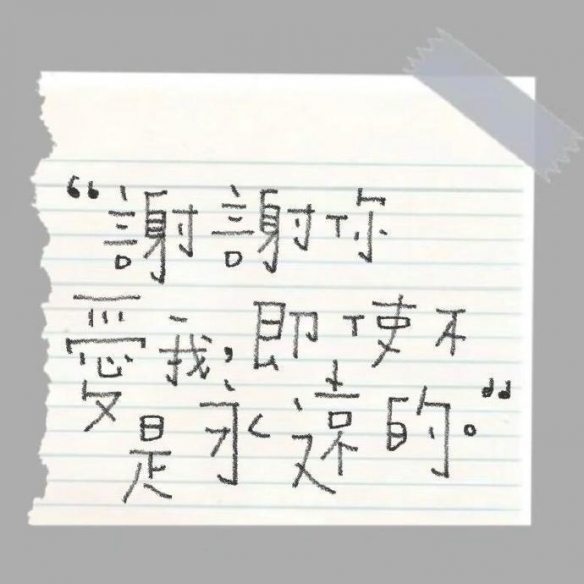 “謝謝你
愛我，即使不
是永遠的。”